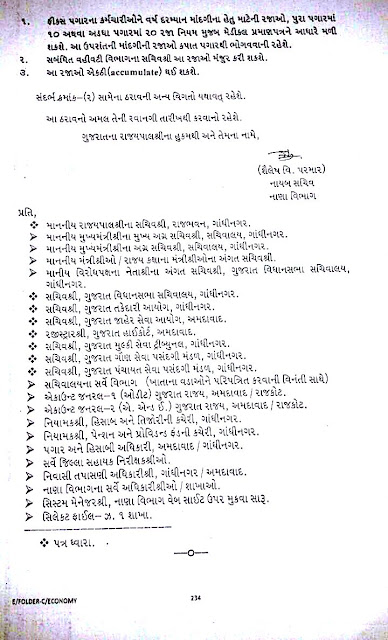 ૧. ફીક્સ પગારના કર્મચારીઓને વર્ષ દરમ્યાન માંદગીના હેતુ માટેની રજાઓ, પુરા પગારમાં
૧૦ અથવા અડધા પગારમાં ૨૦ રજા નિયમ મુજબ મેડીકલ પ્રમાણપત્રને આધારે મળી
શકશે. આ ઉપરાંતની માંદગીની રજાઓ કપાત પગારથી ભોગવવાની રહેશે.
૨. સંબંધિત વહીવટી વિભાગના સચિવશ્રી આ રજાઓ મંજુર કરી શકશે.
૩. આ રજાઓ એકઠી(accumulate) થઈ શકશે.
સંદર્ભ ક્રમાંક-(૨) સામેના ઠરાવની અન્ય વિગતો યથાવત્ રહેશે.
આ ઠરાવનો અમલ તેની રવાનગી તારીખથી કરવાનો રહેશે.
ગુજરાતના રાજ્યપાલશ્રીના હુકમથી અને તેમના નામે,
(શૈલેષ વિ. પરમાર)
નાયબ સચિવ
નાણા વિભાગ
પ્રતિ,
❖ માનનીય રાજ્યપાલશ્રીના સચિવશ્રી, રાજભવન, ગાંધીનગર.
➢ માનનીય મુખ્યમંત્રીશ્રીના મુખ્ય અગ્ર સચિવશ્રી, સચિવાલય, ગાંધીનગર.
➢ માનનીય મુખ્યમંત્રીશ્રીના અગ્ર સચિવશ્રી, સચિવાલય, ગાંધીનગર.
➢ માનનીય મંત્રીશ્રીઓ / રાજ્ય કક્ષાના મંત્રીશ્રીઓના અંગત સચિવશ્રી.
➢ માનીય વિરોધપક્ષના નેતાશ્રીના અંગત સચિવશ્રી, ગુજરાત વિધાનસભા સચિવાલય,
ગાંધીનગર.
❖ સચિવશ્રી, ગુજરાત વિધાનસભા સચિવાલય, ગાંધીનગર.
❖ સચિવશ્રી, ગુજરાત તકેદારી આયોગ, ગાંધીનગર.
❖ સચિવશ્રી, ગુજરાત જાહેર સેવા આયોગ, અમદાવાદ.
❖ રજીસ્ટ્રારશ્રી, ગુજરાત હાઈકોર્ટ, અમદાવાદ.
❖ સચિવશ્રી, ગુજરાત મુલ્કી સેવા ટ્રીબ્યુનલ, ગાંધીનગર.
❖ સચિવશ્રી, ગુજરાત ગૌણ સેવા પસંદગી મંડળ, ગાંધીનગર.
❖ સચિવશ્રી, ગુજરાત પંચાયત સેવા પસંદગી મંડળ, ગાંધીનગર.
➢ સચિવાલયના સર્વે વિભાગ (ખાતાના વડાઓને પરિપત્રિત કરવાની વિનંતી સાથે)
➢ એકાઉન્ટ જનરલ-૧ (ઓડીટ) ગુજરાત રાજ્ય, અમદાવાદ / રાજકોટ.
➢ એકાઉન્ટ જનરલ-૨ (એ. એન્ડ ઈ.) ગુજરાત રાજ્ય, અમદાવાદ / રાજકોટ.
➢ નિયામકશ્રી, હિસાબ અને તિજોરીની કચેરી, ગાંધીનગર.
➢ નિયામકશ્રી, પેન્શન અને પ્રોવિડન્ડ ફંડની કચેરી, ગાંધીનગર.
➢ પગાર અને હિસાબી અધિકારી, અમદાવાદ / ગાંધીનગર.
➢ સર્વે જિલ્લા સહાયક નિરીક્ષકશ્રીઓ.
➢ નિવાસી તપાસણી અધિકારીશ્રી, ગાંધીનગર / અમદાવાદ.
➢ નાણા વિભાગના સર્વે અધિકારીશ્રીઓ / શાખાઓ.
➢ સિસ્ટમ મેનેજરશ્રી, નાણા વિભાગ વેબ સાઈટ ઉપર મુકવા સારૂ.
➢ સિલેક્ટ ફાઈલ- ઝ. ૧ શાખા.
❖ પત્ર ધ્વારા.
E/FOLDER-C/ECONOMY
234